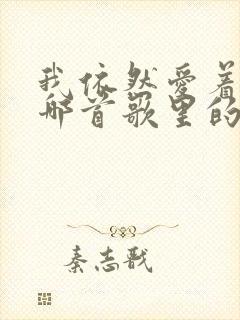 我依然爱着
那首歌里的
秦志戬